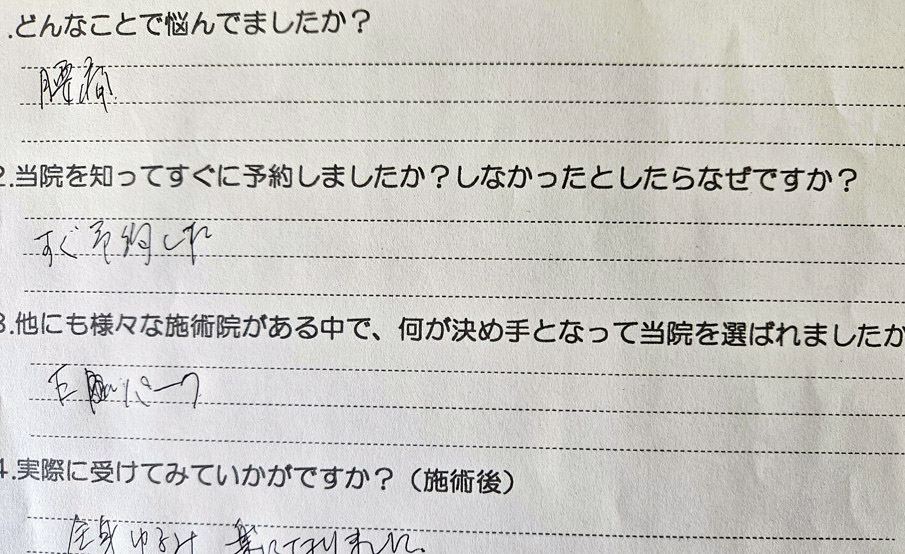 .どんなことで悩んでましたか？
腰痛
2.当院を知ってすぐに予約しましたか？しなかったとしたらなぜですか？
すぐ予約した
3.他にも様々な施術院がある中で、何が決め手となって当院を選ばれましたか
パーク
4.実際に受けてみていかがですか？（施術後）
全身ゆるみ 楽になりました。